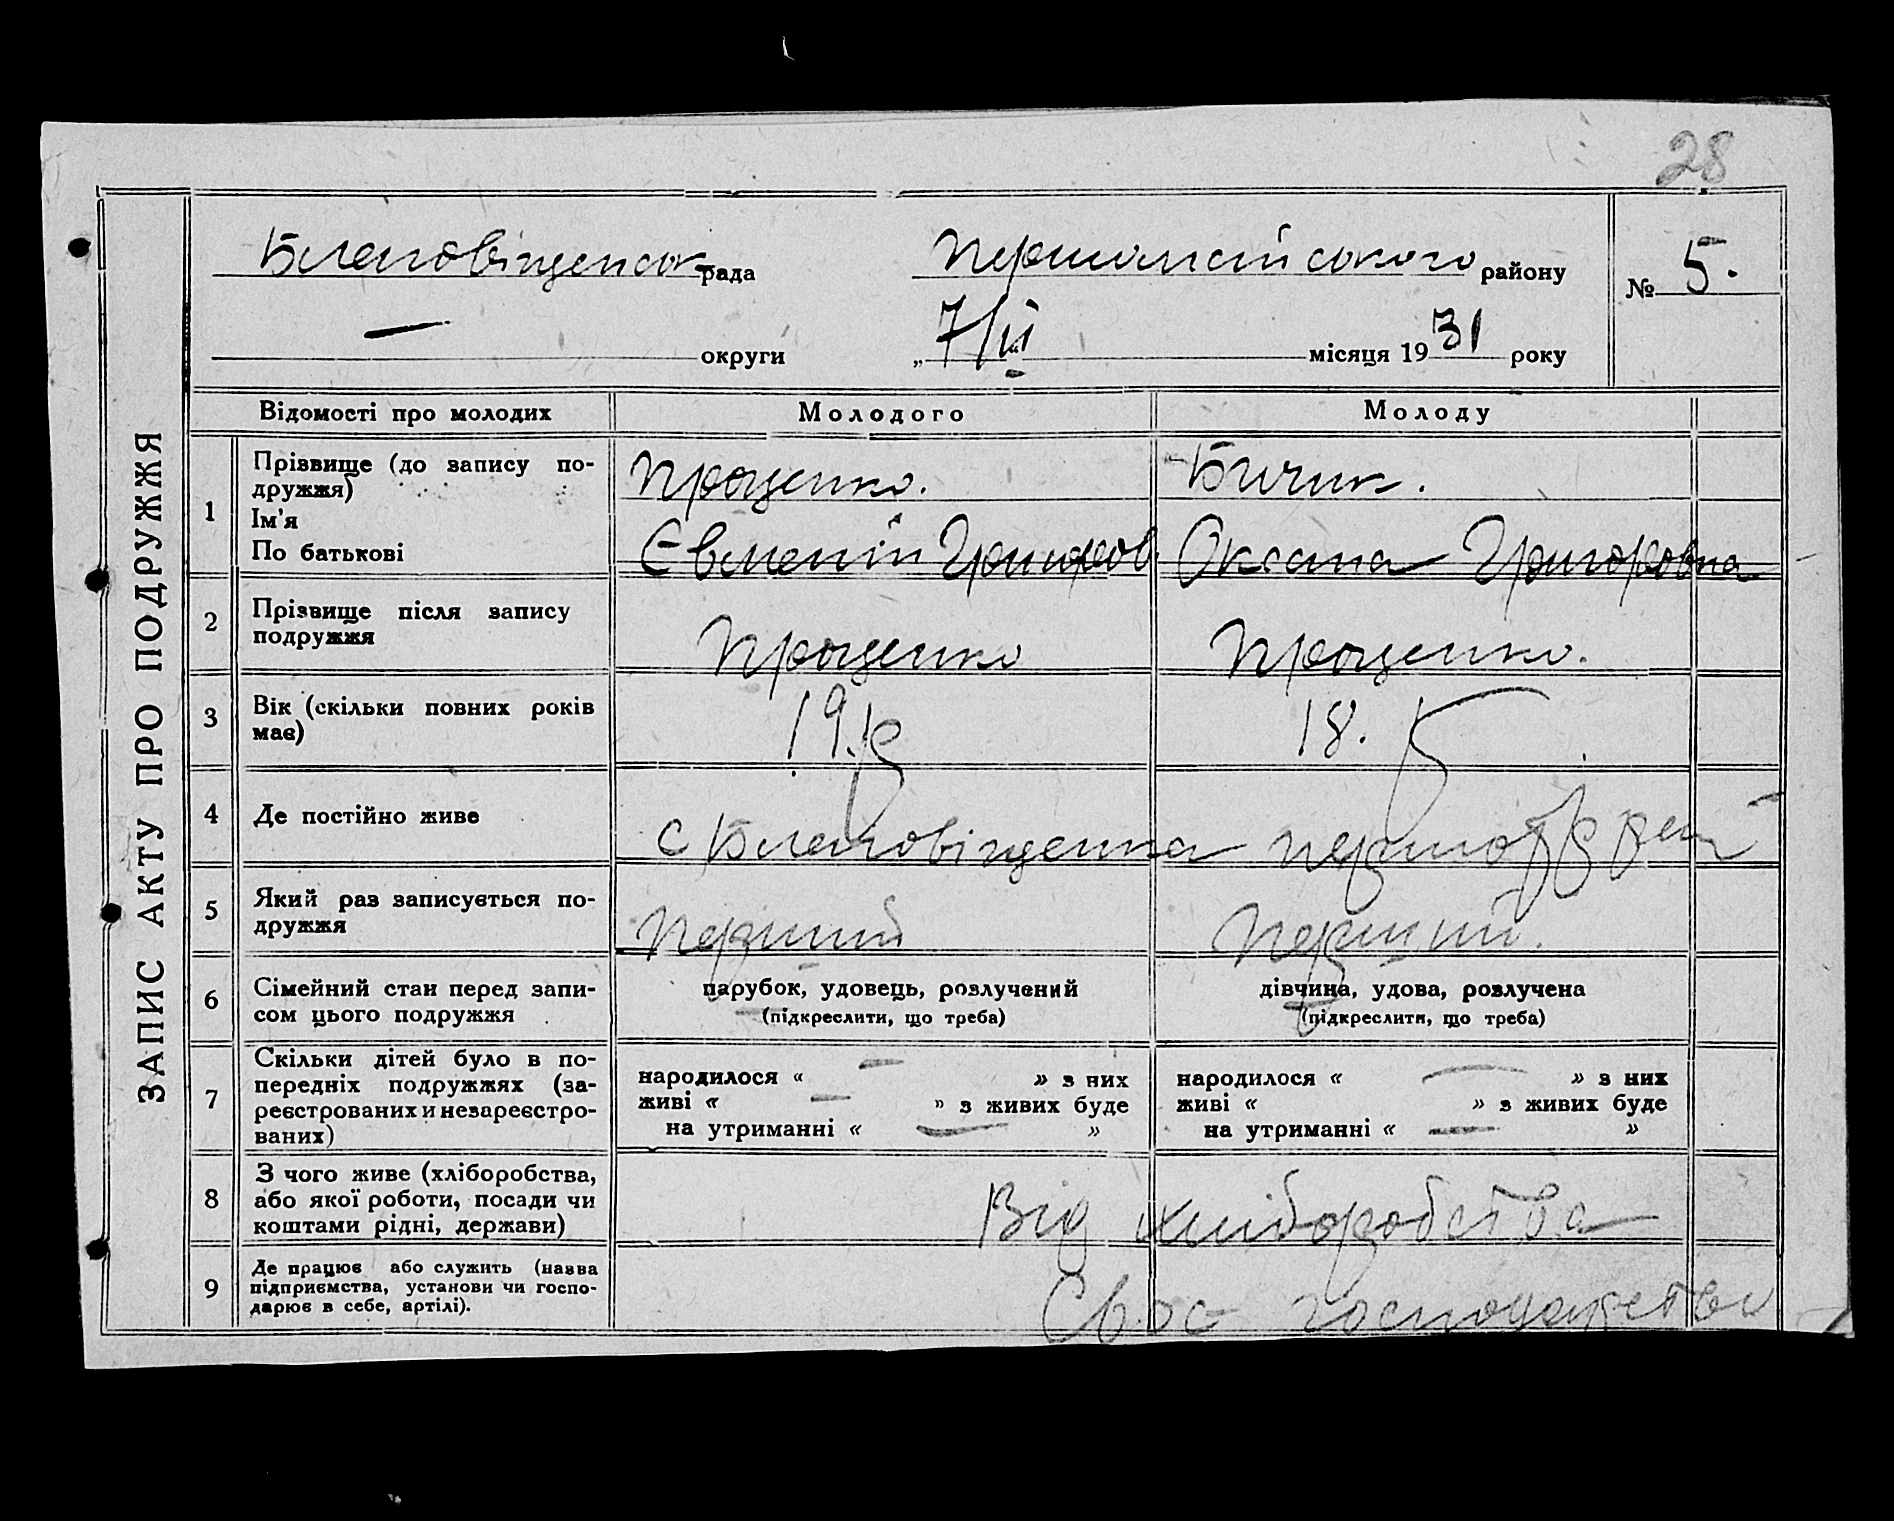 28
Благовіщенськ рада Першомайського району № 5.
— округи „7/ІІ“ місяця 1931 року
ЗАПИС АКТУ ПРО ПОДРУЖЖЯ
Відомості про молодих Молодого Молоду
1 Прізвище (до запису по-
дружжя) Проценко. Бичик.
Ім'я
По батькові Євменій Григоров. Оксана Григоровна
2 Прізвище після запису
подружжя Проценко Проценко.
3 Вік (скільки повних років
має) 19 р 18.
4 Де постійно живе с Благовіщенка
5 Який раз записується по-
дружжя Перший Перший.
6 Сімейний стан перед запи-
сом цього подружжя парубок, удовець, розлучений дівчина, удова, розлучена
(підкреслити, що треба) (підкреслити, що треба)
7 Скільки дітей було в по-
передніх подружжях (за-
реєстрованих и незареєстро-
ваних)
народилося « — » з них народилося « — » з них
живі « — » з живих буде живі « » з живих буде
на утриманні « — » на утриманні « — »
8 З чого живе (хліборобства,
або якої роботи, посади чи
коштами рідні, держави) Від хліборобства
9 Де працює або служить (назва
підприємства, установи чи госпо-
дарює в себе, артілі). Своє господарство